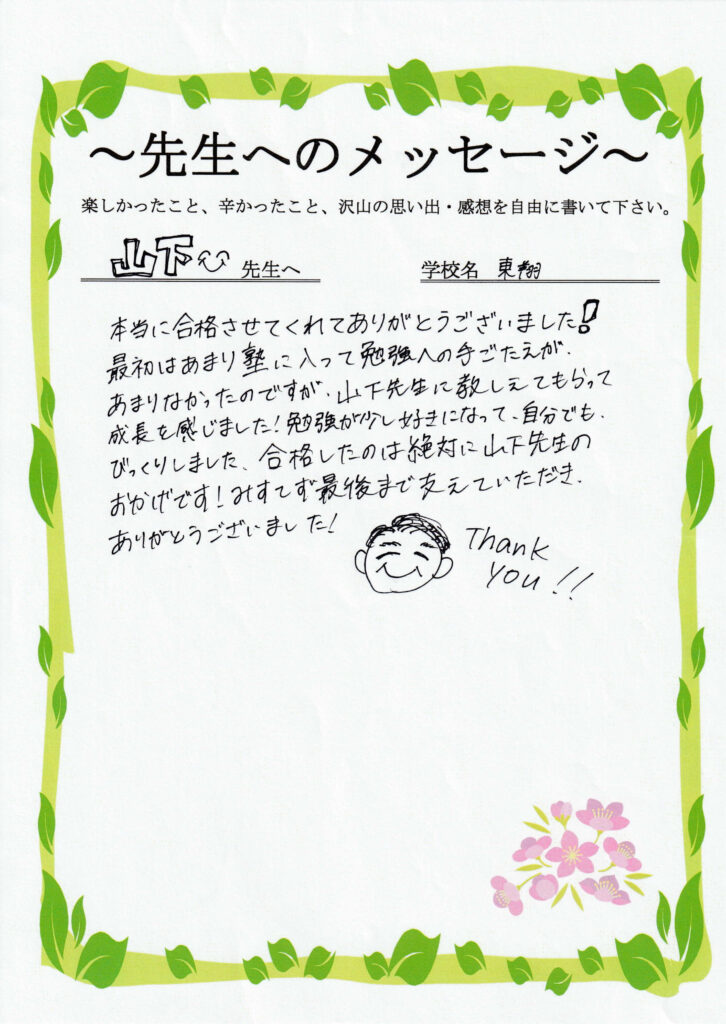 〜先生へのメッセージ〜
楽しかったこと、辛かったこと、沢山の思い出・感想を自由に書いて下さい。
山下 先生へ 学校名 東翔
本当に合格させてくれてありがとうございました!
最初はあまり塾に入って勉強への手ごたえが、
あまりなかったのですが、山下先生に教しえてもらって
成長を感じました!勉強が少し好きになって、自分でも、
びっくりしました、合格したのは絶対に山下先生の
おかげです!みすてず最後まで支えていただき、
ありがとうございました!
Thank
you!!